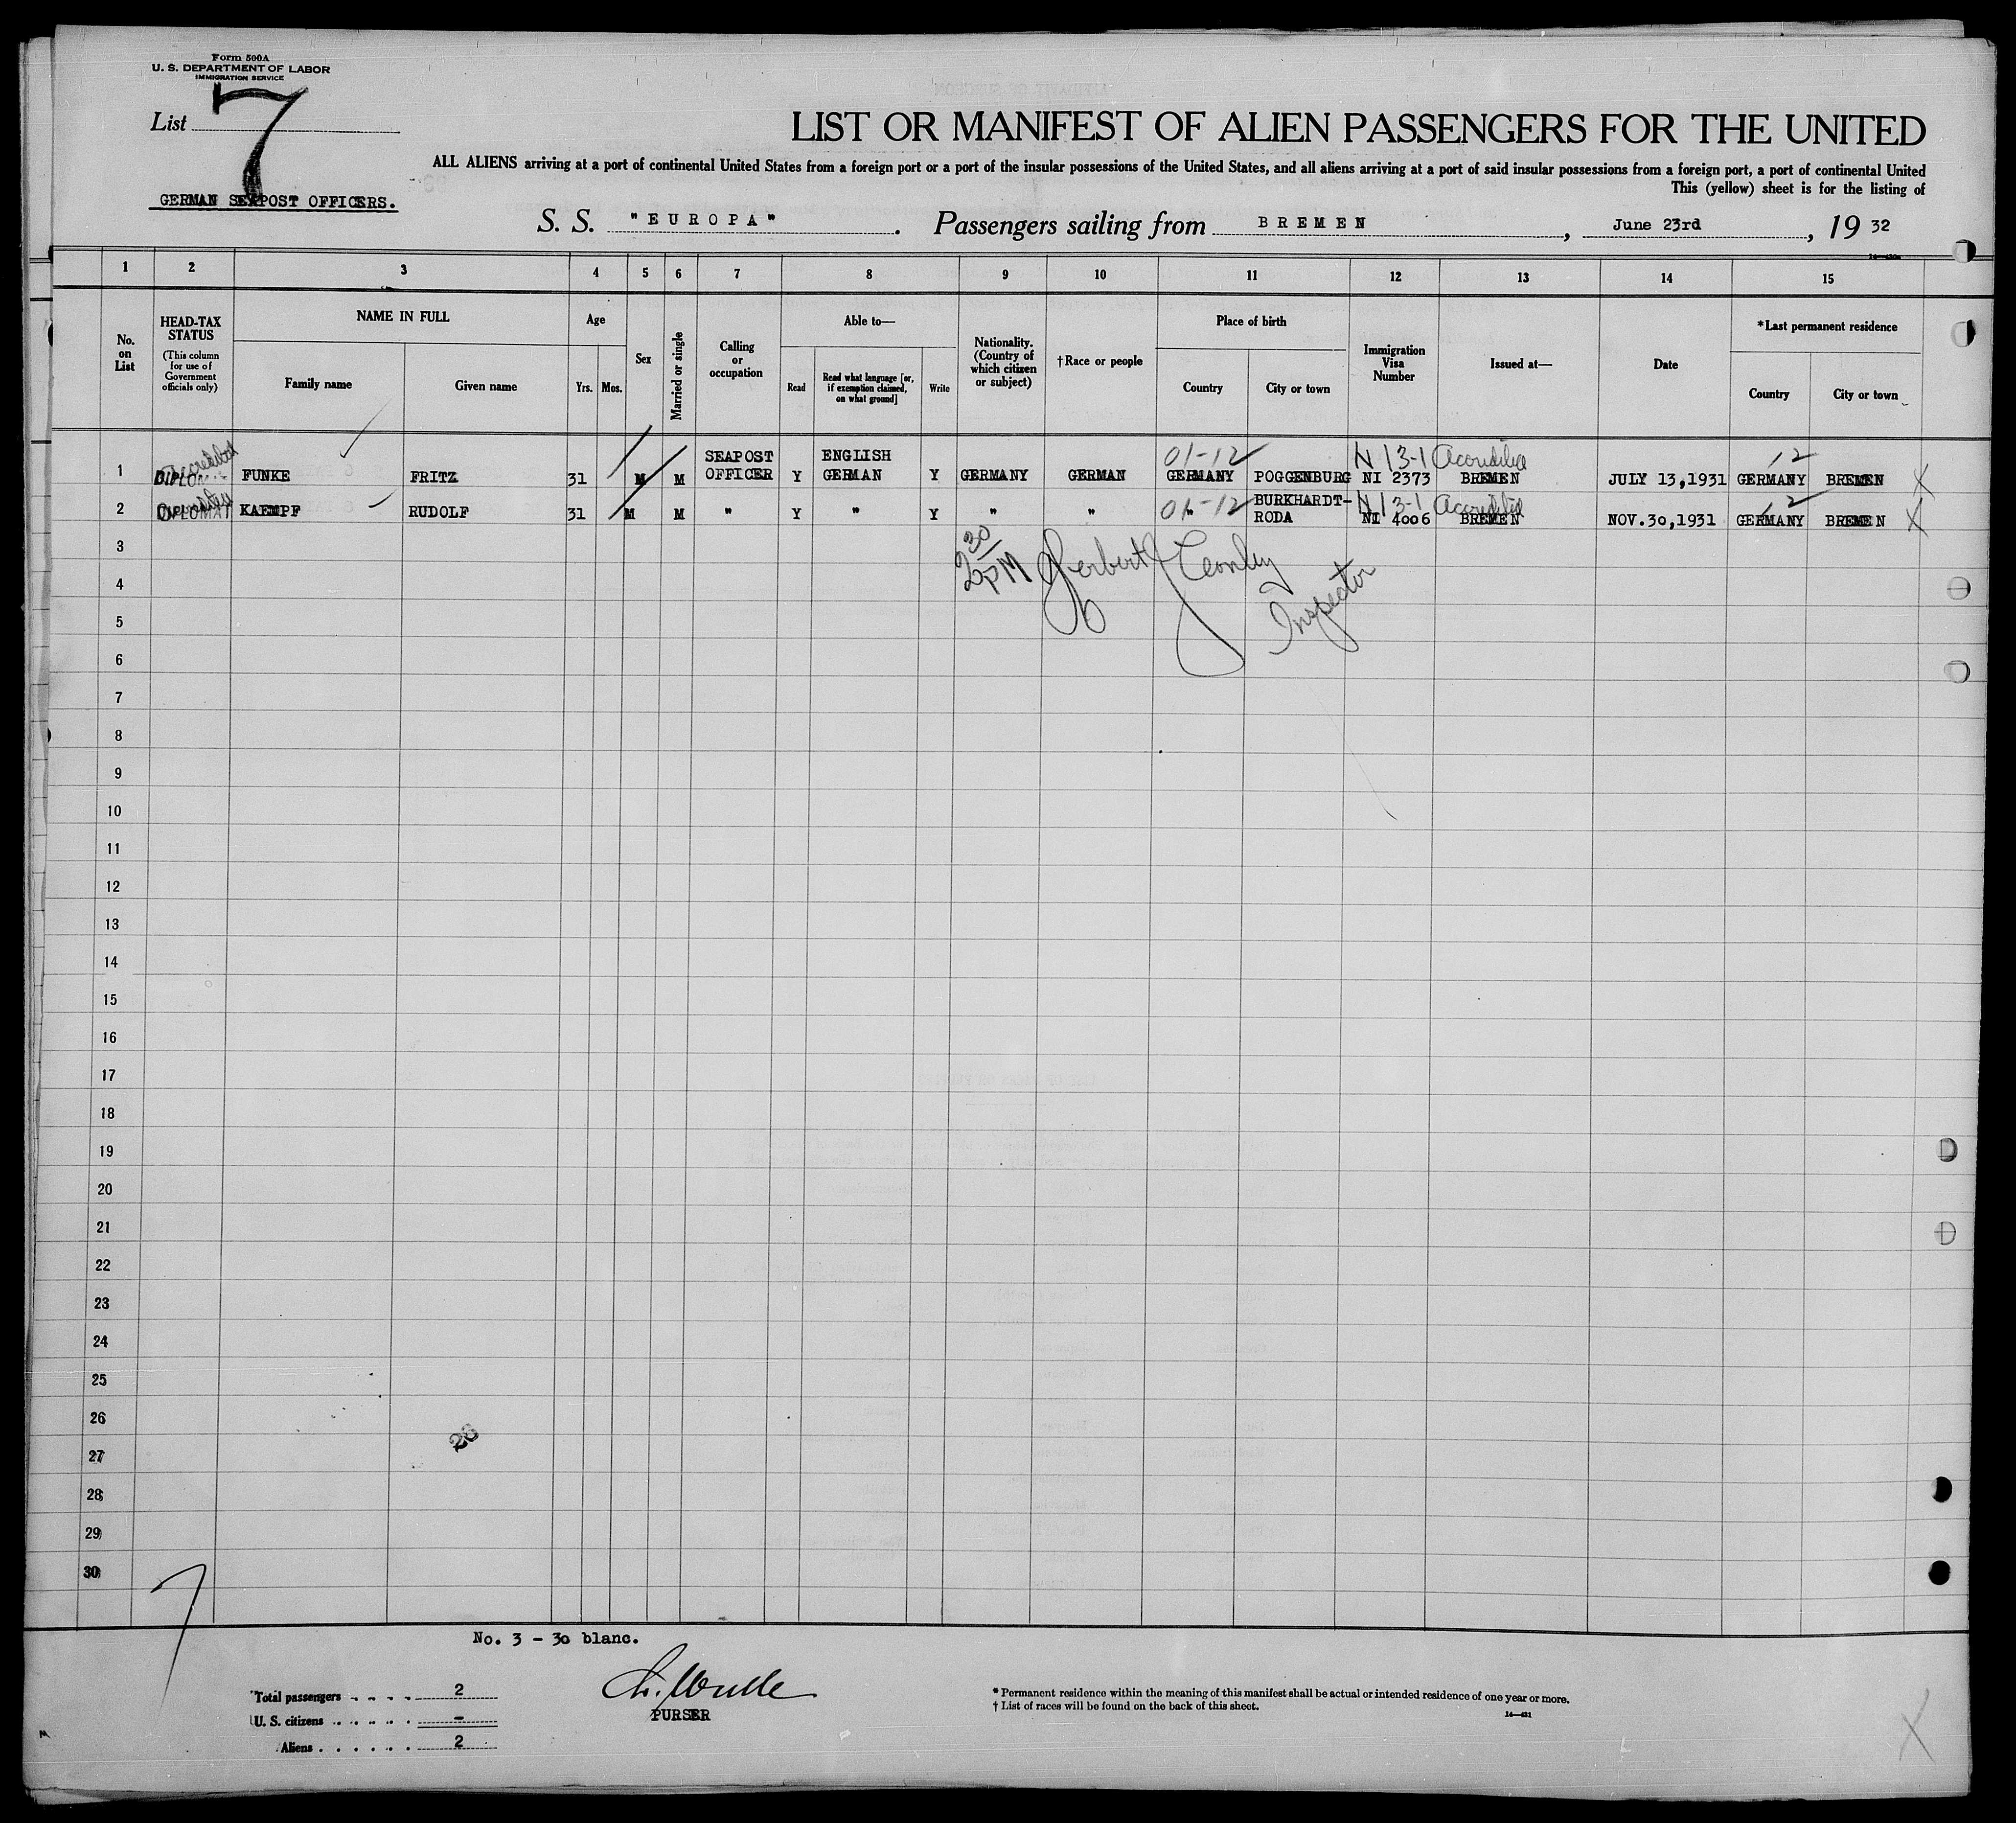 Form 500A
U. S. DEPARTMENT OF LABOR
IMMIGRATION SERVICE
List 7
GERMAN SEAPOST OFFICERS.
LIST OR MANIFEST OF ALIEN PASSENGERS FOR THE UNITED
ALL ALIENS arriving at a port of continental United States from a foreign port or a port of the insular possessions of the United States, and all aliens arriving at a port of said insular possessions from a foreign port, a port of continental United
This (yellow) sheet is for the listing of
S. S. "EUROPA". Passengers sailing from BREMEN, June 23rd, 19 32
1 2 3 4 5 6 7 8 9 10 11 12 13 14 15
No. on List
HEAD-TAX STATUS
(This column for use of Government officials only)
NAME IN FULL
Family name
Given name
Age
Yrs. Mos.
Sex
Married or single
Calling or occupation
Able to—
Read
Read what language [or, if exemption claimed, on what ground]
Write
Nationality. (Country of which citizen or subject)
†Race or people
Place of birth
Country
City or town
Immigration Visa Number
Issued at—
Date
*Last permanent residence
Country
City or town
01-12 N 13-1 12
1 FUNKE FRITZ 31 M M SEAPOST OFFICER Y ENGLISH GERMAN Y GERMANY GERMAN GERMANY POGGENBURG NI 2373 BREMEN JULY 13,1931 GERMANY BREMEN X
01-12 N 13-1 12
2 DIPLOMAT KAEMPF RUDOLF 31 M M " Y " Y " " " BURKHARDT-RODA NI 4006 BREMEN NOV.30,1931 GERMANY BREMEN X
2 30 PM Herbert Inspector
3
4
5
6
7
8
9
10
11
12
13
14
15
16
17
18
19
20
21
22
23
24
25
26
26
27
28
29
30
No. 3 - 30 blanc.
Total passengers 2
U. S. citizens -
Aliens 2
PURSER
* Permanent residence within the meaning of this manifest shall be actual or intended residence of one year or more.
† List of races will be found on the back of this sheet.
14—431
X